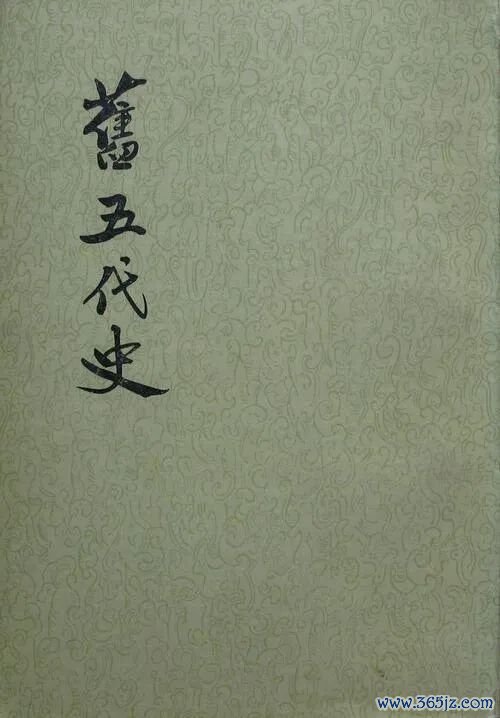 舊五代史
www.365jz.com